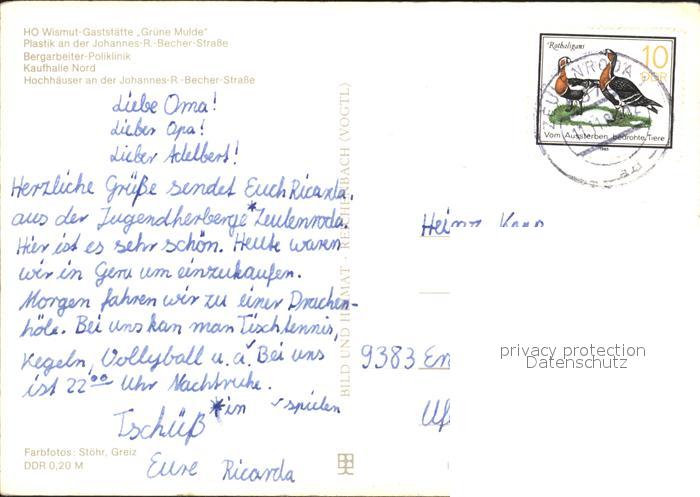 HO Wismut-Gaststätte „Grüne Mulde"
Plastik an der Johannes-R.-Becher-Straße
Bergarbeiter-Poliklinik
Kaufhalle Nord
Hochhäuser an der Johannes-R.-Becher-Straße
Liebe Oma!
Lieber Opa!
Lieber Adelbert!
Herzliche Grüße sendet Euch Ricarda,
aus der Jugendherberge *Zeulenroda.
Hier ist es sehr schön. Heute waren
wir in Gera um einzukaufen.
Morgen fahren wir zu einer Drachen-
höle. Bei uns kan man Tischtennis,
Kegeln, Vollyball u.a.✓ Bei uns
ist 22⁰⁰ Uhr Nachtruhe.
*in ✓spielen
Tschüß
Eure Ricarda
Farbfotos: Stöhr, Greiz
DDR 0,20 M
BILD UND HEIMAT · REICHENBACH (VOGTL)
Rothalsgans
10
DDR
Vom Aussterben bedrohte Tiere
1985
ZEULENRODA
Heinz
9383
privacy protection
Datenschutz